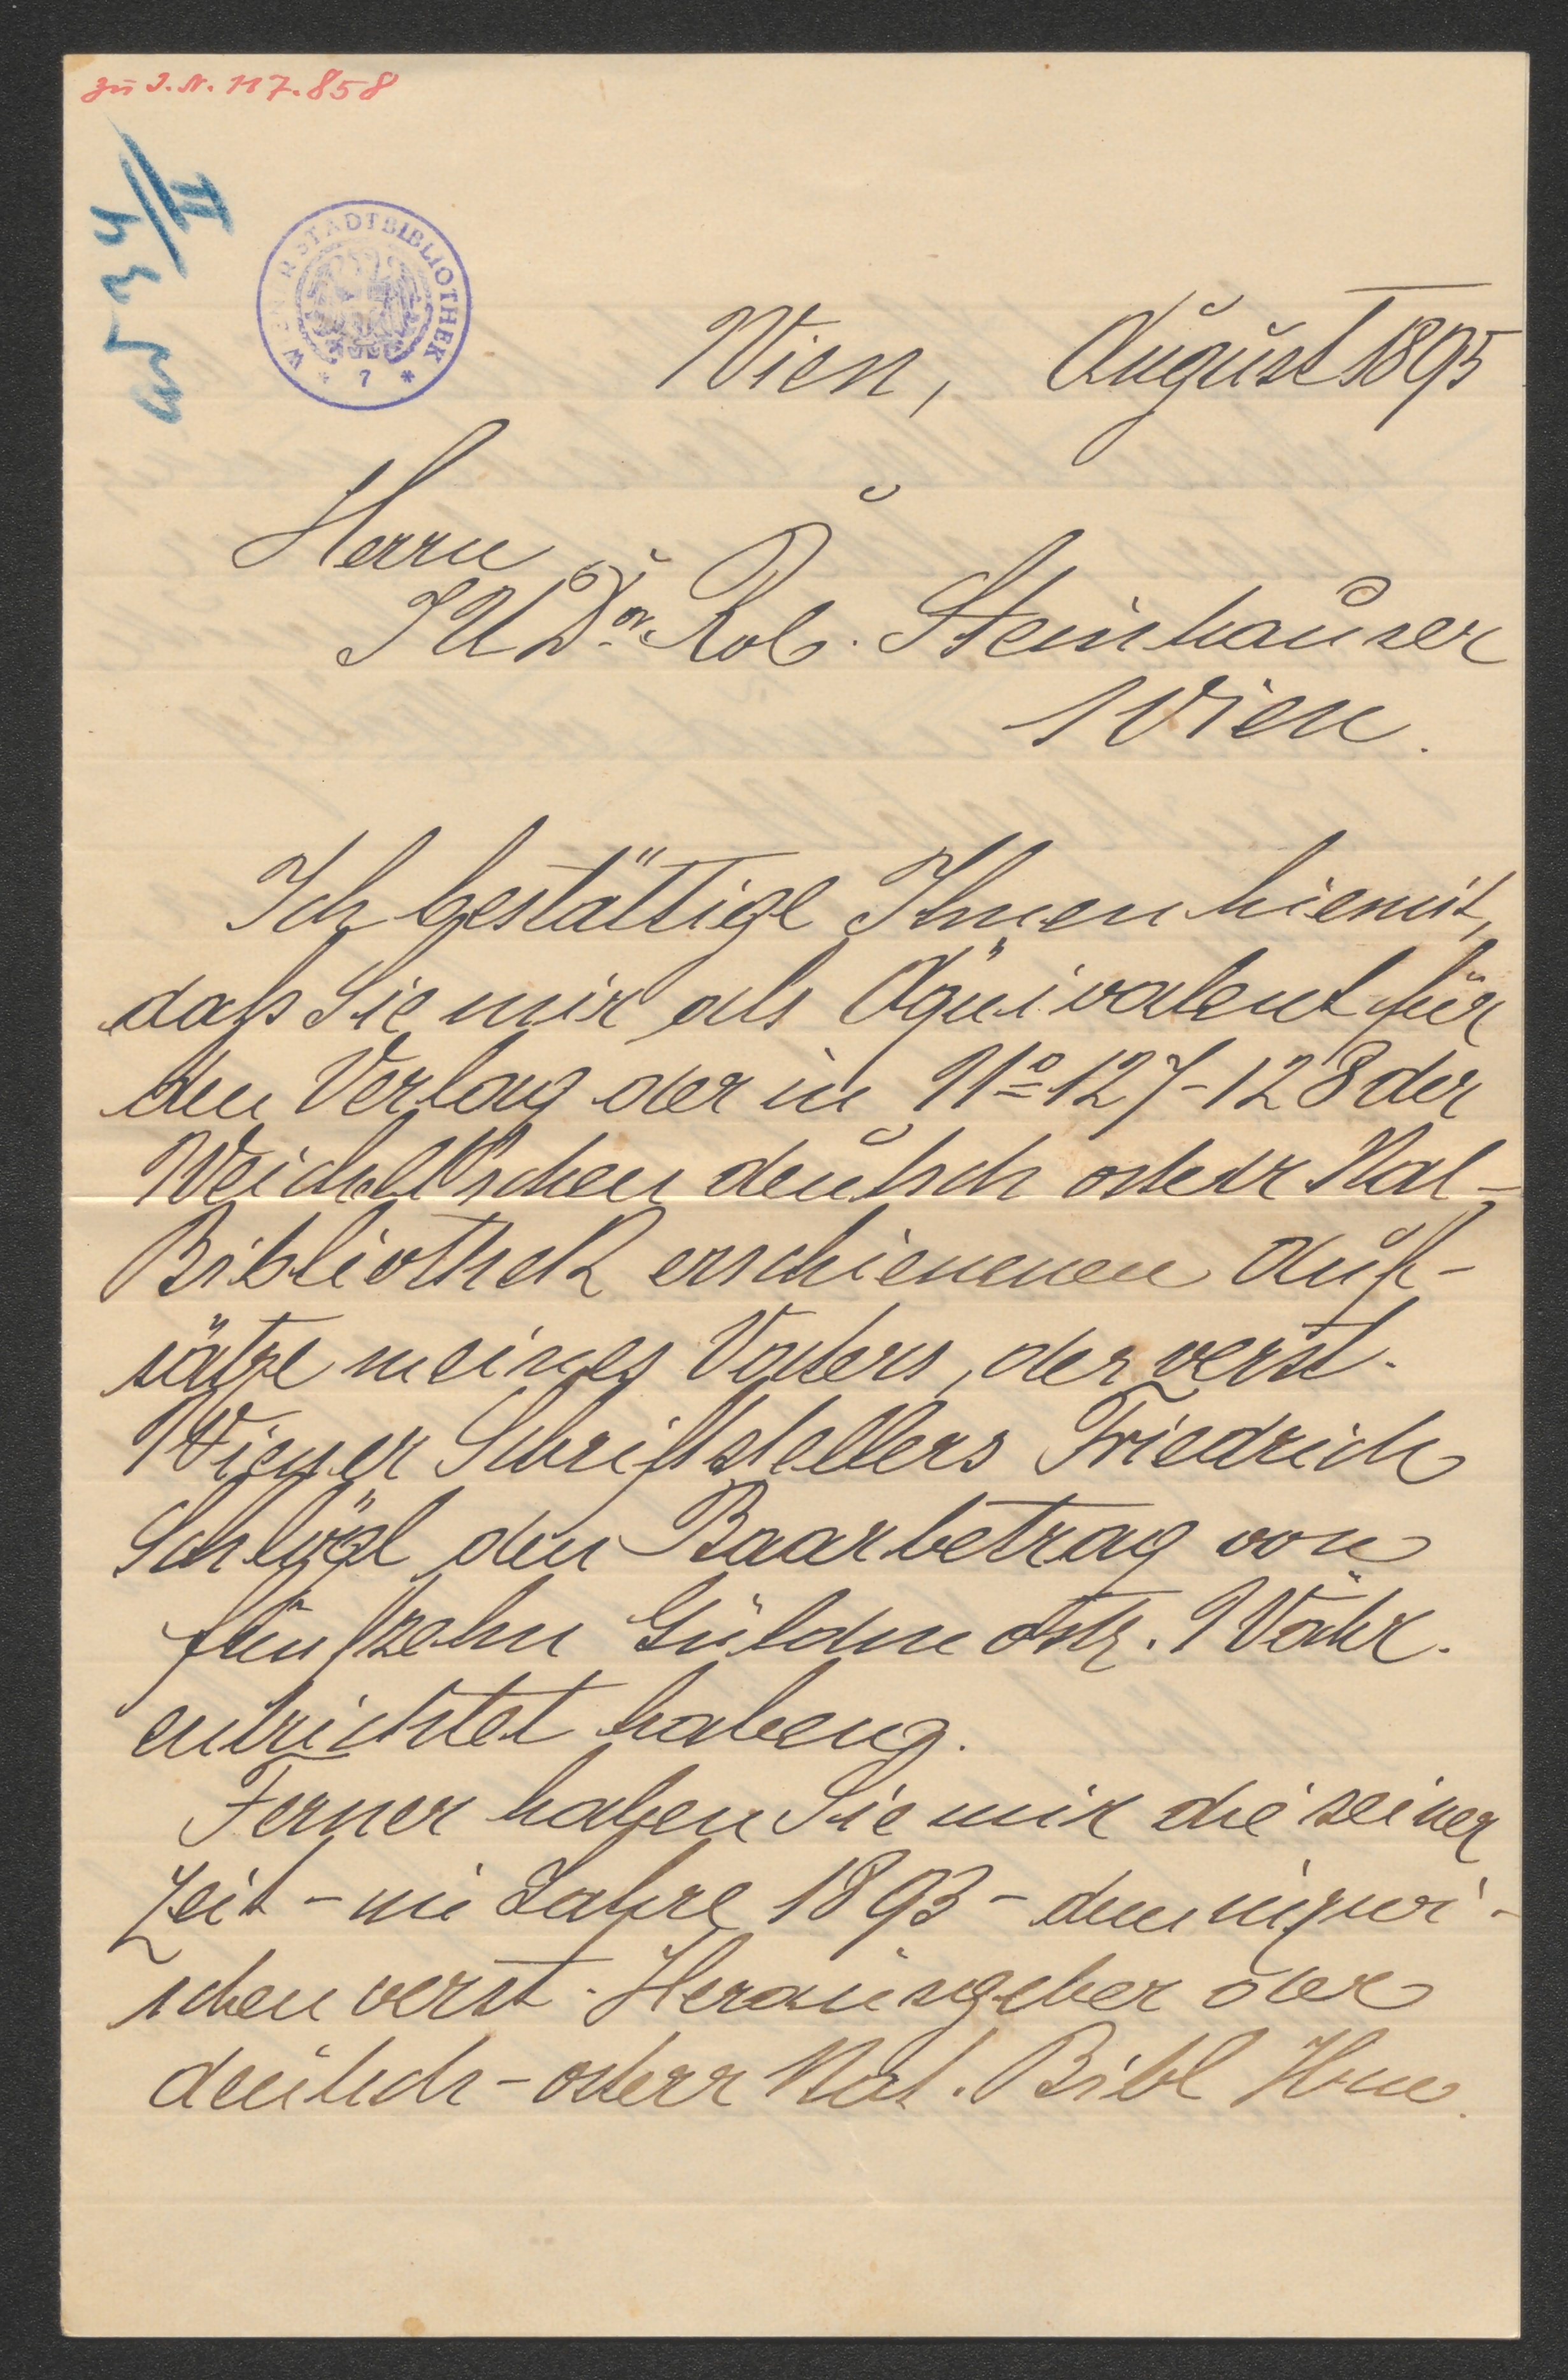 zu I.N. 117.858
II
WIENER STADTBIBLIOTHEK * 7 *
Wien, August 1895
Herrn
JUDor Rob. Steinhauser
Wien.
Ich bestättige Ihnen hiemit,
daß Sie mir als Äquivalent für
den Verlag der in No 127-128 der
Weichelt'schen deutsch österr Nat-
Bibliothek erschienenen Auf-
sätze meines Vaters, des verst.
Wiener Schriftstellers Friedrich
Schlögl den Baarbetrag von
fünfzehn Gulden östr. Währ.
entrichtet haben.
Ferner haben Sie mir die seiner
Zeit - im Jahre 1893 - dem inzwi-
schen verst. Herausgeber der
deutsch-österr Nat. Bibl Hrn.